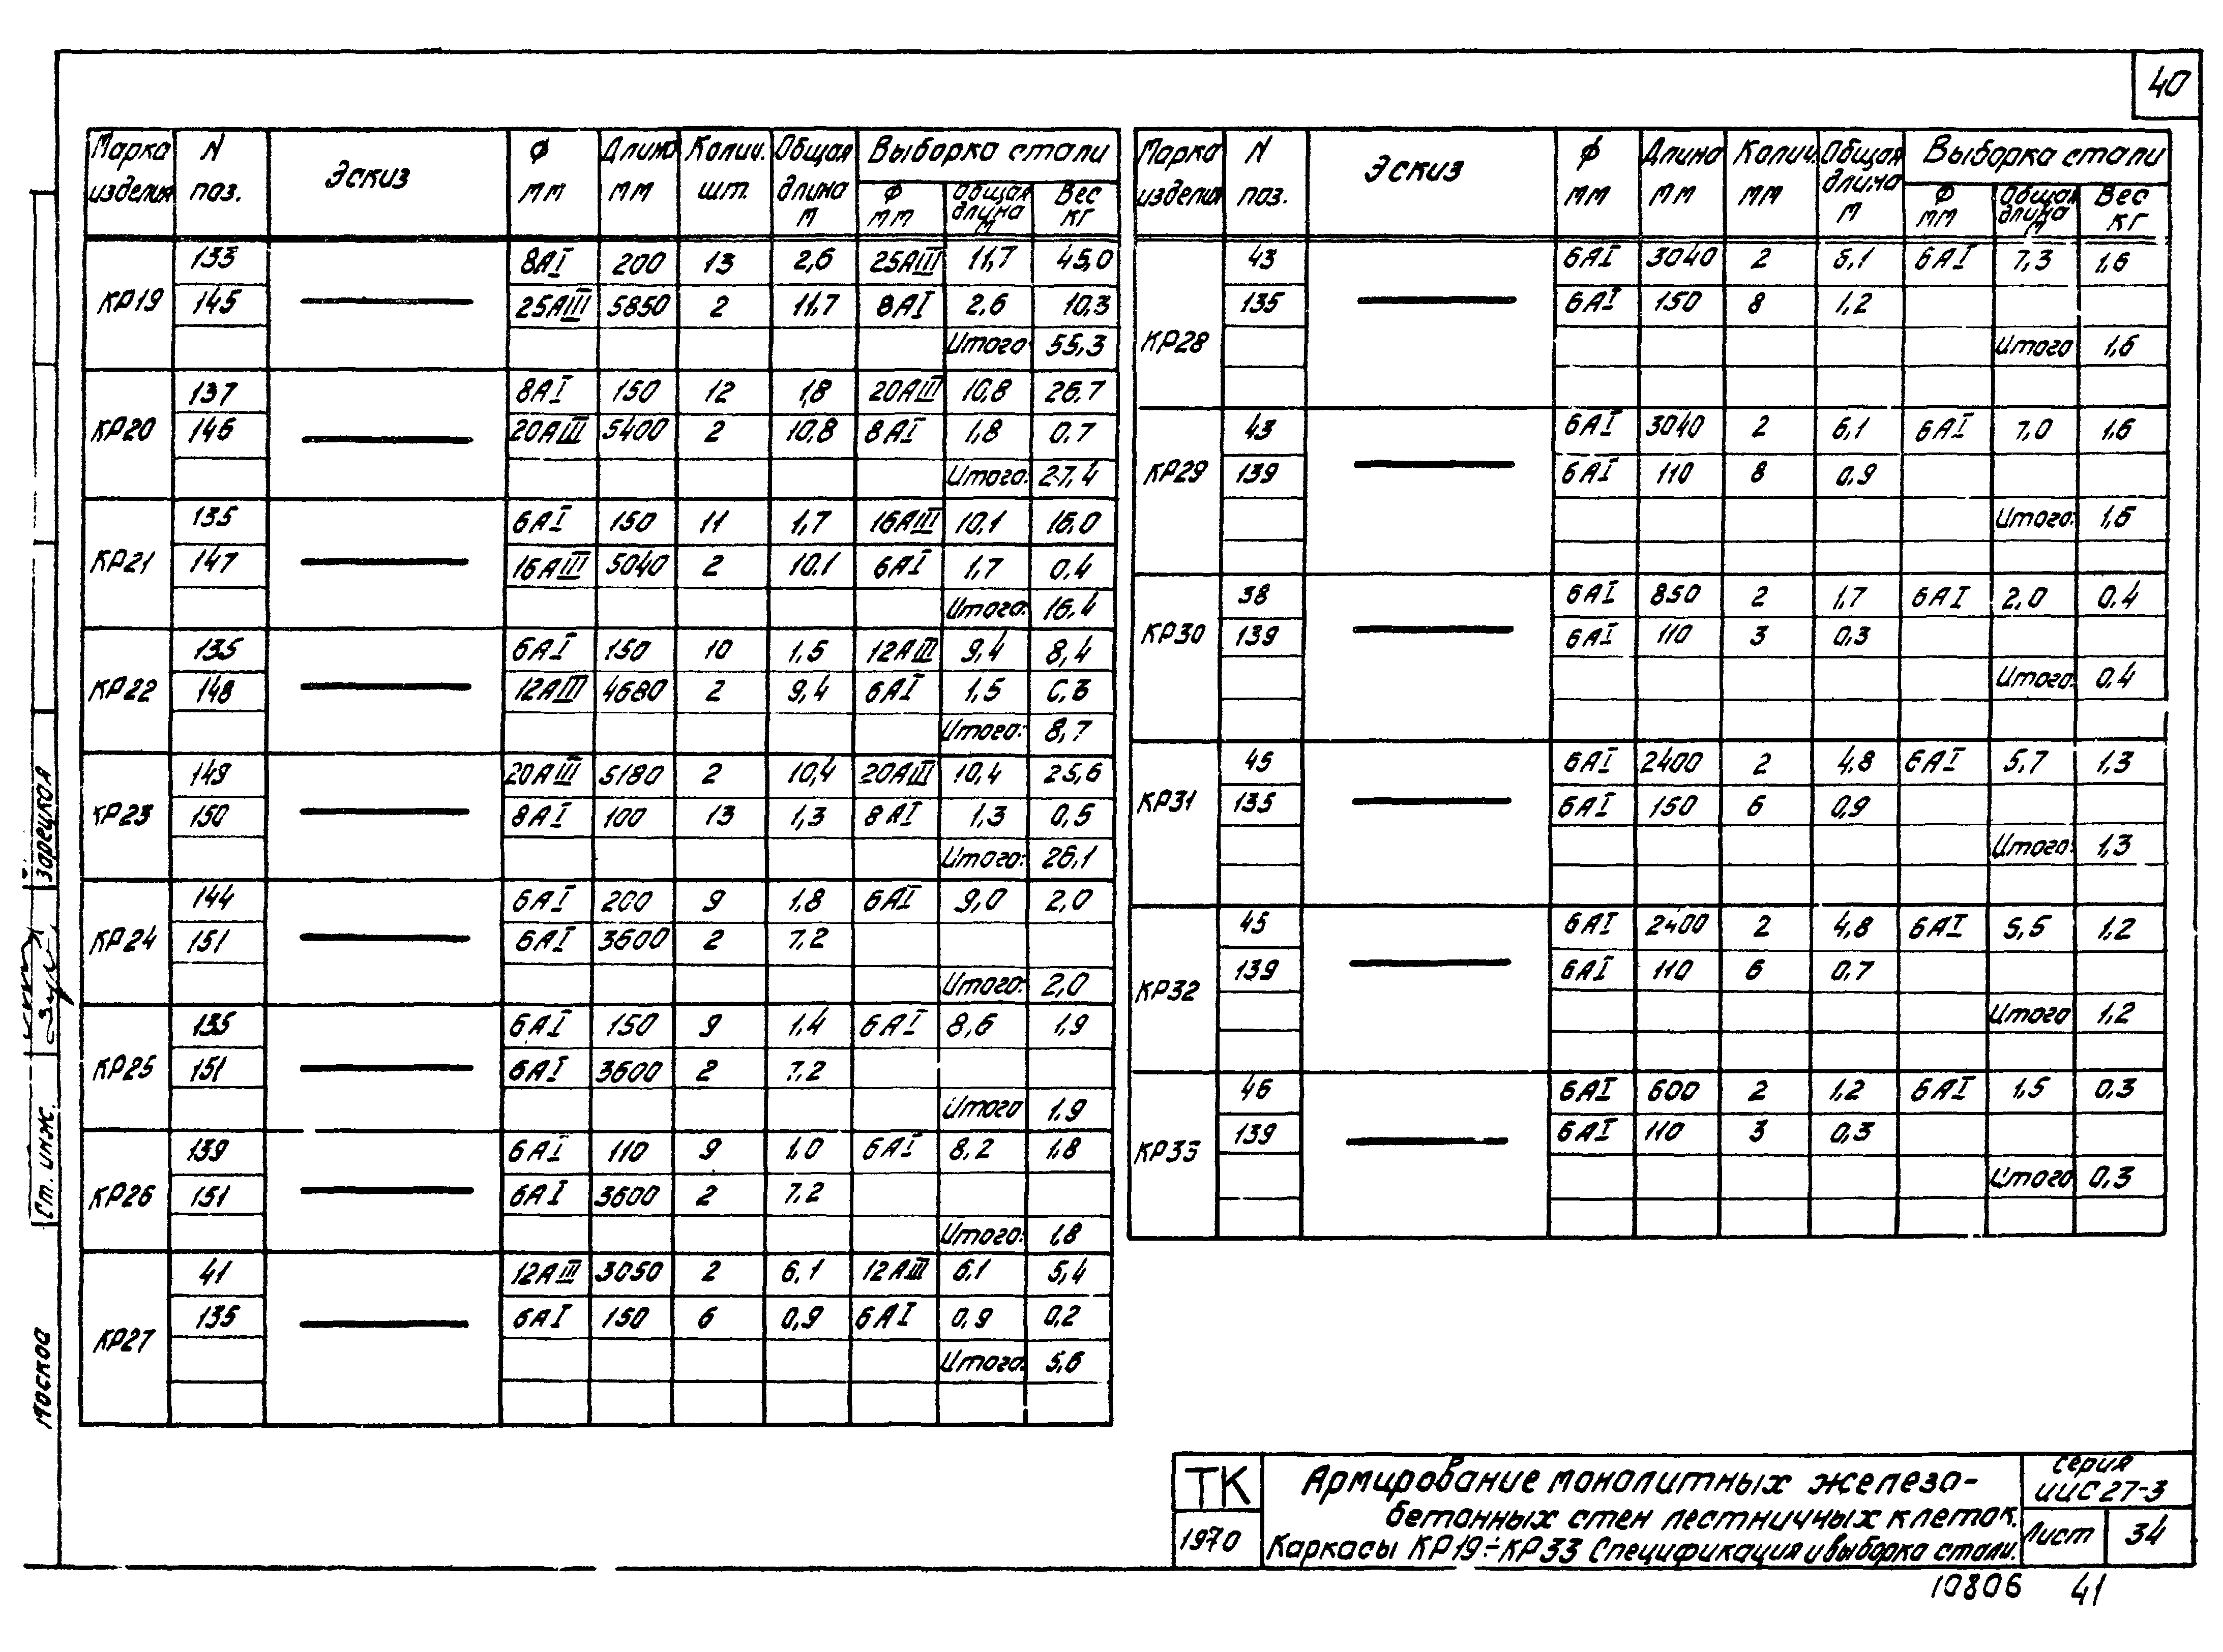 40
Марка изделия | N поз. | Эскиз | Ф мм | Длина мм | Колич. шт. | Общая длина м | Выборка стали
Ф мм | Общая длина м | Вес кг
133 | 8АI | 200 | 13 | 2,6 | 25АIII | 11,7 | 45,0
КР19 | 145 | 25АIII | 5850 | 2 | 11,7 | 8АI | 2,6 | 10,3
Итого | 55,3
137 | 8АI | 150 | 12 | 1,8 | 20АIII | 10,8 | 26,7
КР20 | 146 | 20АIII | 5400 | 2 | 10,8 | 8АI | 1,8 | 0,7
Итого: | 27,4
135 | 6АI | 150 | 11 | 1,7 | 16АIII | 10,1 | 16,0
КР21 | 147 | 16АIII | 5040 | 2 | 10,1 | 6АI | 1,7 | 0,4
Итого: | 16,4
135 | 6АI | 150 | 10 | 1,5 | 12АIII | 9,4 | 8,4
КР22 | 148 | 12АIII | 4680 | 2 | 9,4 | 6АI | 1,5 | 0,3
Итого: | 8,7
149 | 20АIII | 5180 | 2 | 10,4 | 20АIII | 10,4 | 25,6
КР23 | 150 | 8АI | 100 | 13 | 1,3 | 8АI | 1,3 | 0,5
Итого: | 26,1
144 | 6АI | 200 | 9 | 1,8 | 6АI | 9,0 | 2,0
КР24 | 151 | 6АI | 3600 | 2 | 7,2
Итого: | 2,0
135 | 6АI | 150 | 9 | 1,4 | 6АI | 8,6 | 1,9
КР25 | 151 | 6АI | 3600 | 2 | 7,2
Итого | 1,9
139 | 6АI | 110 | 9 | 1,0 | 6АI | 8,2 | 1,8
КР26 | 151 | 6АI | 3600 | 2 | 7,2
Итого: | 1,8
41 | 12АIII | 3050 | 2 | 6,1 | 12АIII | 6,1 | 5,4
КР27 | 135 | 6АI | 150 | 6 | 0,9 | 6АI | 0,9 | 0,2
Итого: | 5,6
Марка изделия | N поз. | Эскиз | Ф мм | Длина мм | Колич. мм | Общая длина м | Выборка стали
Ф мм | Общая длина м | Вес кг
43 | 6АI | 3040 | 2 | 6,1 | 6АI | 7,3 | 1,6
КР28 | 135 | 6АI | 150 | 8 | 1,2
Итого | 1,6
43 | 6АI | 3040 | 2 | 6,1 | 6АI | 7,0 | 1,6
КР29 | 139 | 6АI | 110 | 8 | 0,9
Итого: | 1,6
38 | 6АI | 850 | 2 | 1,7 | 6АI | 2,0 | 0,4
КР30 | 139 | 6АI | 110 | 3 | 0,3
Итого: | 0,4
45 | 6АI | 2400 | 2 | 4,8 | 6АI | 5,7 | 1,3
КР31 | 135 | 6АI | 150 | 6 | 0,9
Итого: | 1,3
45 | 6АI | 2400 | 2 | 4,8 | 6АI | 5,5 | 1,2
КР32 | 139 | 6АI | 110 | 6 | 0,7
Итого | 1,2
46 | 6АI | 600 | 2 | 1,2 | 6АI | 1,5 | 0,3
КР33 | 139 | 6АI | 110 | 3 | 0,3
Итого | 0,3
Зарецкая
Ст. инж.
Москва
ТК
1970
Армирование монолитных железо-
бетонных стен лестничных клеток.
Каркасы КР19÷КР33 Спецификация и выборка стали.
Серия
ИИС27-3
Лист 34
10806 41